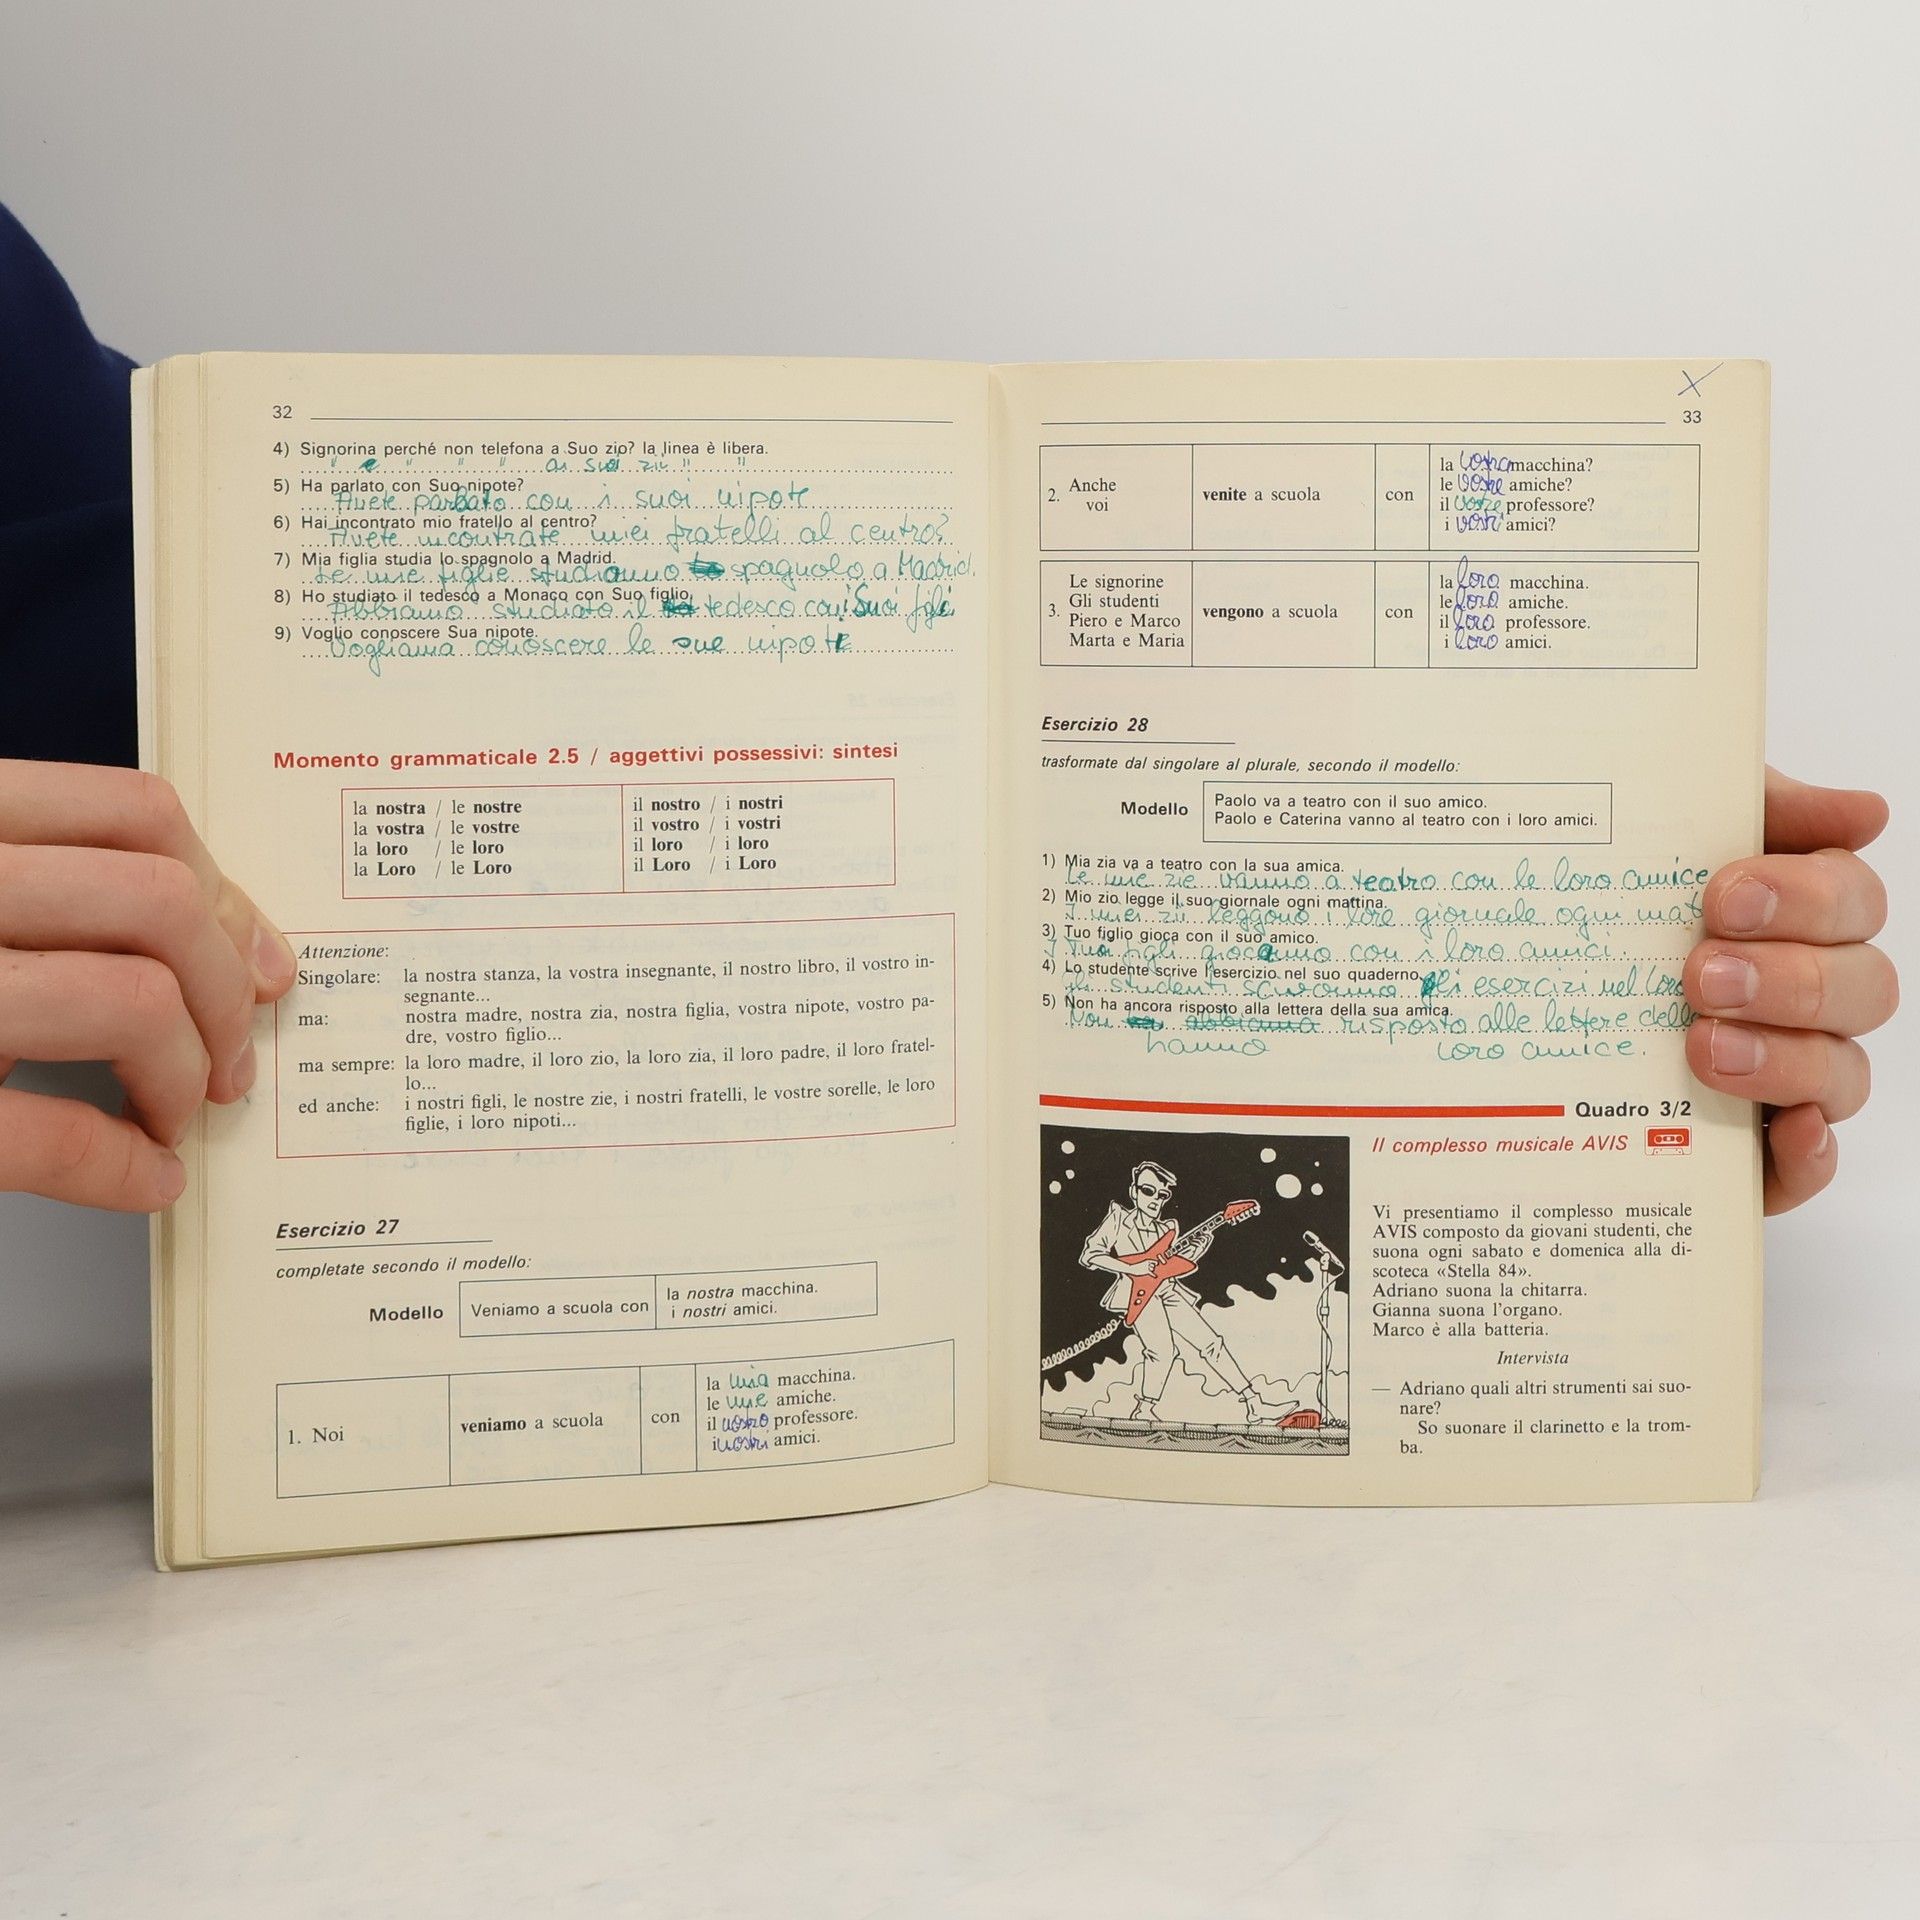 32
4) Signorina perché non telefona a Suo zio? la linea è libera.
" e " " " ai suoi zii " "
5) Ha parlato con Suo nipote?
Avete parlato con i suoi nipote
6) Hai incontrato mio fratello al centro?
Avete incontrate miei fratelli al centro?
7) Mia figlia studia lo spagnolo a Madrid.
Le mie figlie studianno spagnolo a Madrid.
8) Ho studiato il tedesco a Monaco con Suo figlio.
Abbiamo studiato il tedesco con i Suoi figli
9) Voglio conoscere Sua nipote.
Vogliama conoscere le sue nipote
Momento grammaticale 2.5 / aggettivi possessivi: sintesi
la nostra / le nostre
la vostra / le vostre
la loro / le loro
la Loro / le Loro
il nostro / i nostri
il vostro / i vostri
il loro / i loro
il Loro / i Loro
Attenzione:
Singolare: la nostra stanza, la vostra insegnante, il nostro libro, il vostro in-
segnante...
ma: nostra madre, nostra zia, nostra figlia, vostra nipote, vostro pa-
dre, vostro figlio...
ma sempre: la loro madre, il loro zio, la loro zia, il loro padre, il loro fratel-
lo...
ed anche: i nostri figli, le nostre zie, i nostri fratelli, le vostre sorelle, le loro
figlie, i loro nipoti...
Esercizio 27
completate secondo il modello:
Modello Veniamo a scuola con
la nostra macchina.
i nostri amici.
1. Noi veniamo a scuola con
la mia macchina.
le mie amiche.
il nostro professore.
i nostri amici.
33
2. Anche
voi
venite a scuola con
la vostra macchina?
le vostre amiche?
il vostre professore?
i vostri amici?
3. Le signorine
Gli studenti
Piero e Marco
Marta e Maria
vengono a scuola con
la loro macchina.
le loro amiche.
il loro professore.
i loro amici.
Esercizio 28
trasformate dal singolare al plurale, secondo il modello:
Modello
Paolo va a teatro con il suo amico.
Paolo e Caterina vanno al teatro con i loro amici.
1) Mia zia va a teatro con la sua amica.
Le mie zie vanno a teatro con le loro amice
2) Mio zio legge il suo giornale ogni mattina.
I miei zii leggono i lore giornale ogni mat
3) Tuo figlio gioca con il suo amico.
I Tuoi figli giocanno con i loro amici.
4) Lo studente scrive l'esercizio nel suo quaderno.
studenti gli esercizi nel loro
5) Non ha ancora risposto alla lettera della sua amica.
Non abbiamo risposto alle lettere delle
hanno loro amice.
Quadro 3/2
Il complesso musicale AVIS
Vi presentiamo il complesso musicale
AVIS composto da giovani studenti, che
suona ogni sabato e domenica alla di-
scoteca «Stella 84».
Adriano suona la chitarra.
Gianna suona l'organo.
Marco è alla batteria.
Intervista
— Adriano quali altri strumenti sai suo-
nare?
So suonare il clarinetto e la trom-
ba.